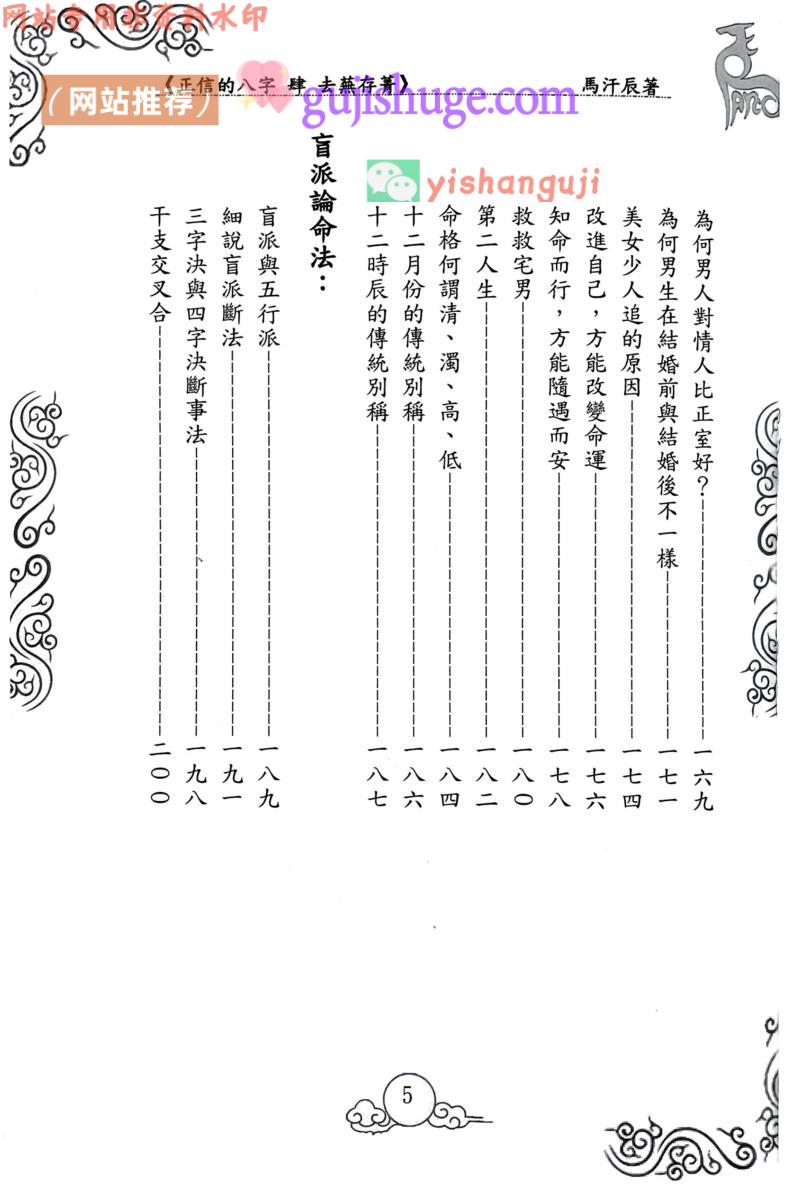 网站专用非资料水印
(网站推荐)
《正信的八字 肆 去蕪存菁》
gujishuge.com
馬汗辰著
yishanguji
為何男人對情人比正室好？一六九
為何男生在結婚前與結婚後不一樣 一七一
美女少人追的原因 一七四
改進自己，方能改變命運 一七六
知命而行，方能隨遇而安 一七八
救救宅男 一八〇
第二人生 一八二
命格何謂清、濁、高、低 一八四
十二月份的傳統別稱 一八六
十二時辰的傳統別稱 一八七
盲派論命法：
盲派與五行派 一八九
細說盲派斷法 一九一
三字決與四字決斷事法 一九八
干支交叉合 二〇〇
5